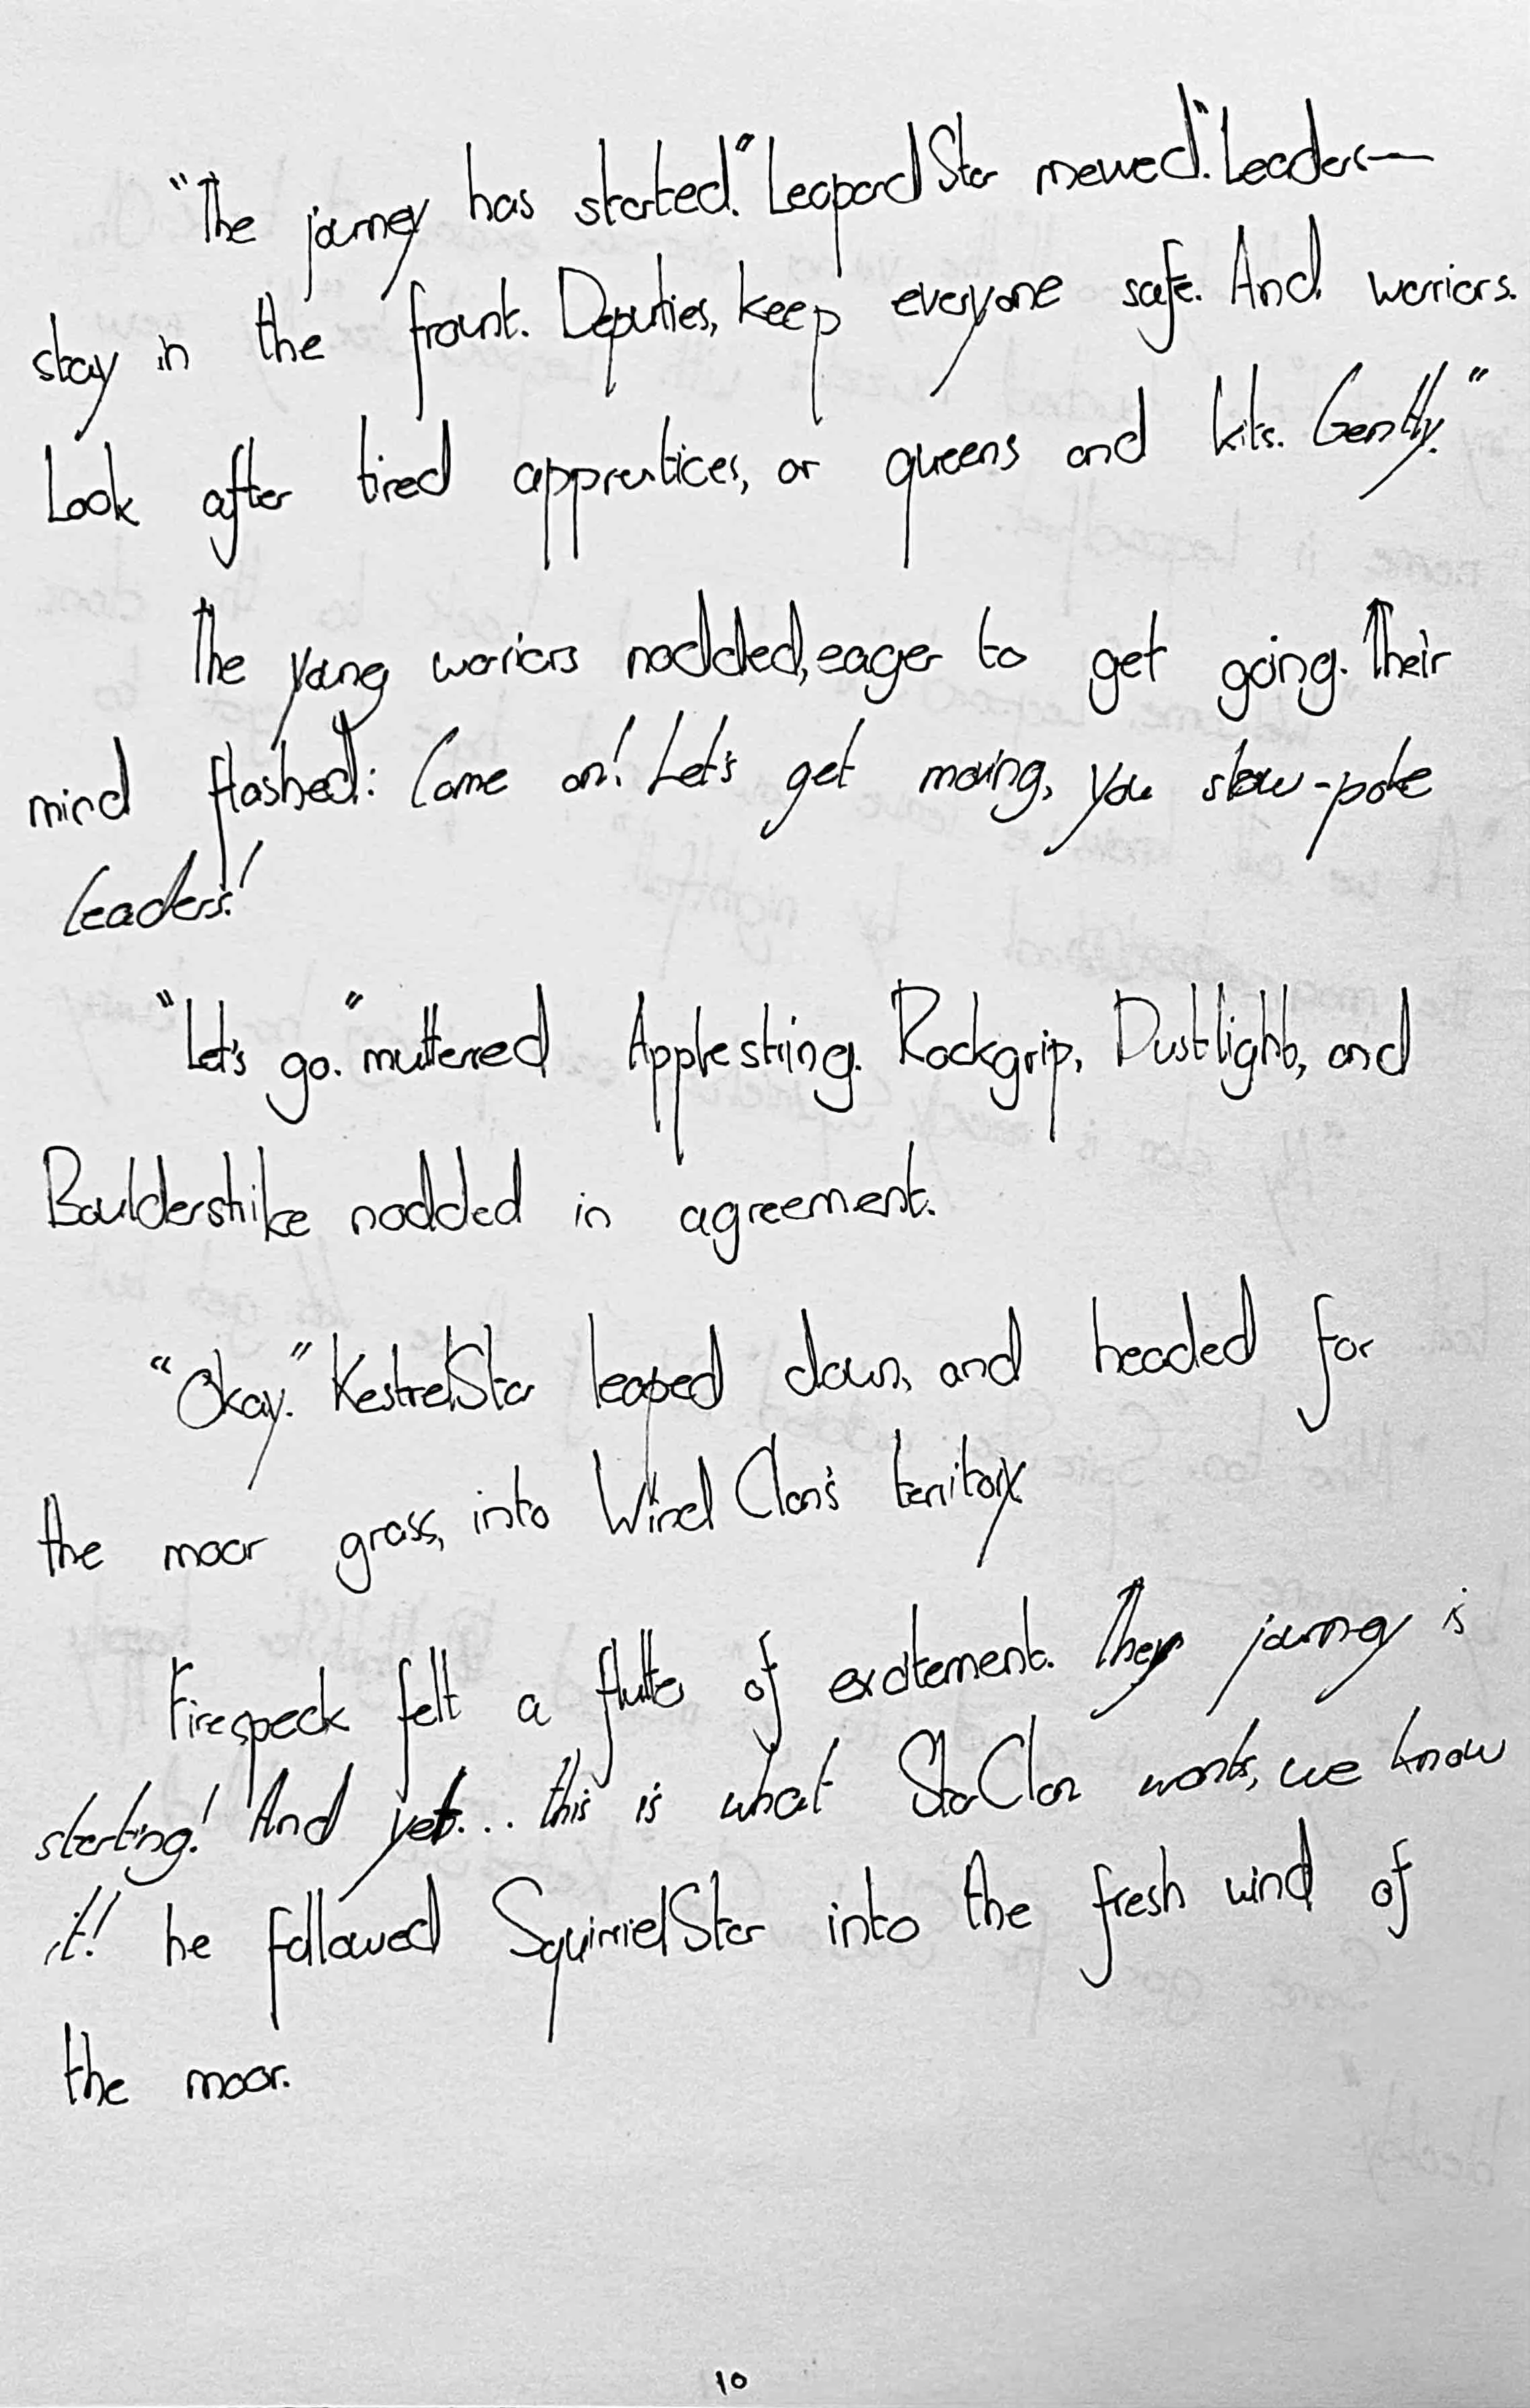 "The journey has started." LeopardStar mewed. "Leaders—
stay in the frount. Deputies, keep everyone safe. And warriors.
Look after tired apprentices, or queens and kits. Gently."
The young warriors nodded, eager to get going. Their
mind flashed: Come on! Let's get moving, you slow-poke
leaders!
"Let's go." muttered Applestring. Rockgrip, Dustlight, and
Boulderstrike nodded in agreement.
"Okay." KestrelStar leaped down, and headed for
the moor grass, into WindClan's territory.
Firespeck felt a flutter of excitement. They journey is
starting! And yet... this is what StarClan wants, we know
it! he followed SquirrielStar into the fresh wind of
the moor.
10